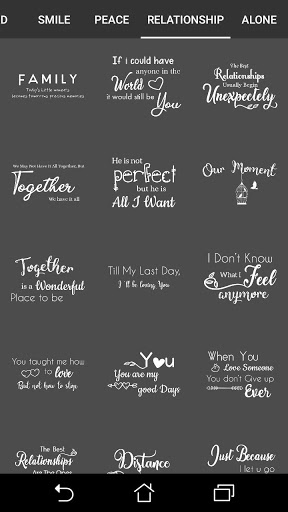 D SMILE PEACE RELATIONSHIP ALONE
FAMILY
Today's little moments
becomes tomorrow precious memories
If I could have
anyone in the
World
it would still be
You
The Best
Relationships
Usually Begin
Unexpectely
We May Not Have It All Together, But
Together
We have it all
He is not
perfect
but he is
All I Want
Our Moment
Together
is a Wonderful
Place to be
Till My Last Day,
I'll be loving You
I Don't Know
What I Feel
anymore
You taught me how
to love
But not how to stop
You
You are my
good Days
When You
Love Someone
You don't Give up
Ever
The Best
Relationships
Are The Ones
Distance
Just Because
I let u go